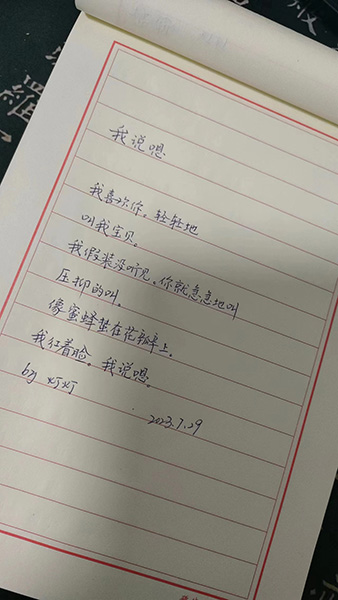 我说嗯
我喜欢你，轻轻地
叫我宝贝。
我假装没听见，你就急急地叫
压抑的叫。
像蜜蜂蛰在花瓣上。
我红着脸。我说嗯。
by 灯灯
2023.7.29